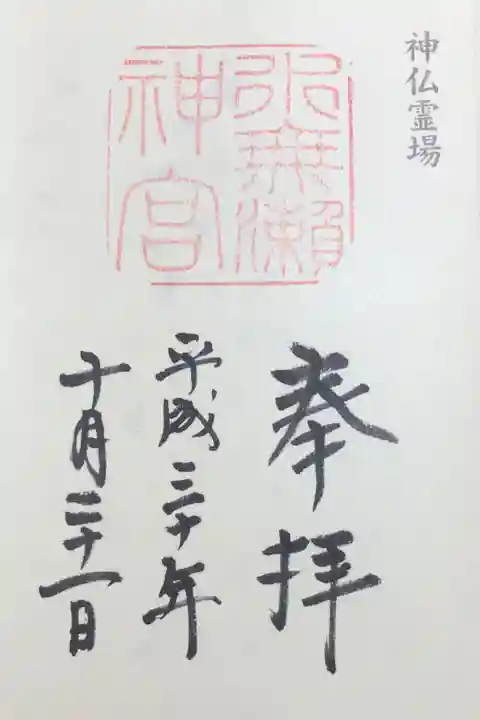 神仏霊場
水無瀬
神宮
奉拝
平成三十年
十月三十一日